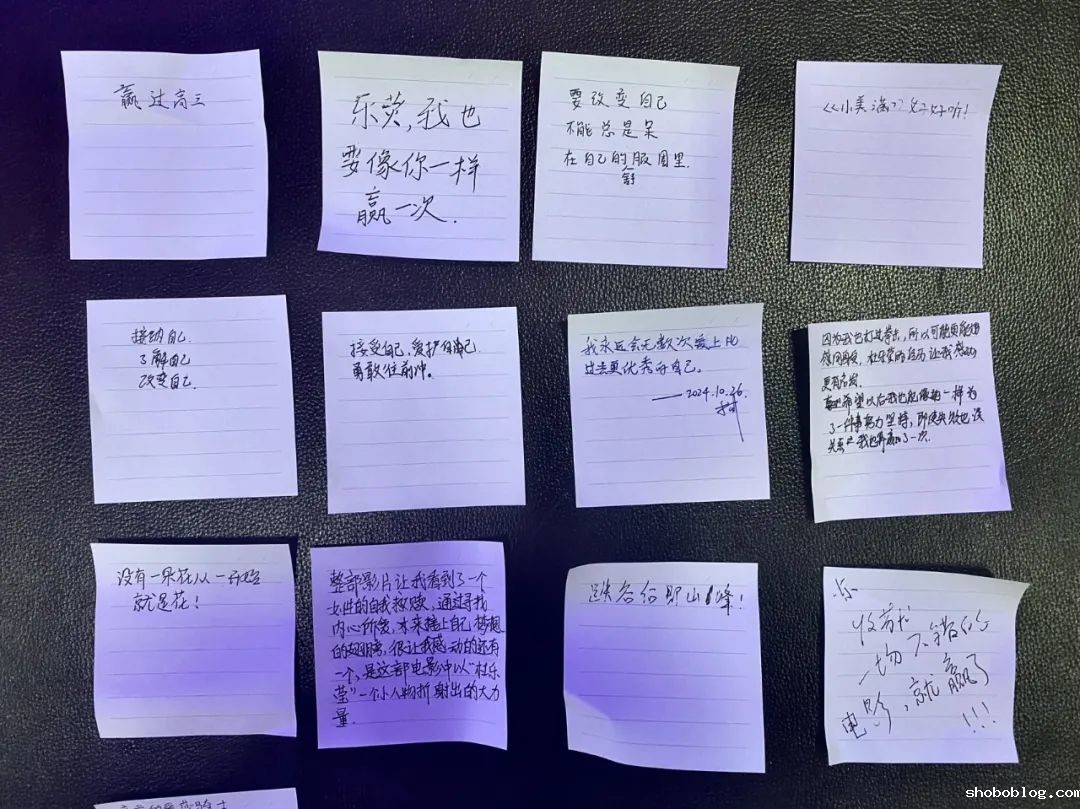 赢过高三
乐莹,我也
要像你一样
赢一次.
要改变自己
不能总是呆
在自己的服圈里.
舒
《小美满》好好听!
接纳自己
了解自己
改变自己.
接受自己,爱护自己
勇敢往前冲。
我永远会无数次爱上比
过去更优秀的自己。
——2024.10.26.
因为我也打过拳击,所以可能更能
杜乐莹的经历让我感动
更有
希望以后我也能像她一样为
了一件事努力坚持,即使失败也没
关系 我也算赢了一次.
没有一朵花从一开始
就是花!
整部影片让我看到了一个
女性的自我救赎,通过寻找
内心所爱,本来接上自己梦想
的翅膀,很让我感动的还有
一个,是这部电影中以“杜乐
莹”一个小人物折射出的大力
量.
跌谷后即山峰!
乐
收获
一场不错的
电影,就赢了
!!!